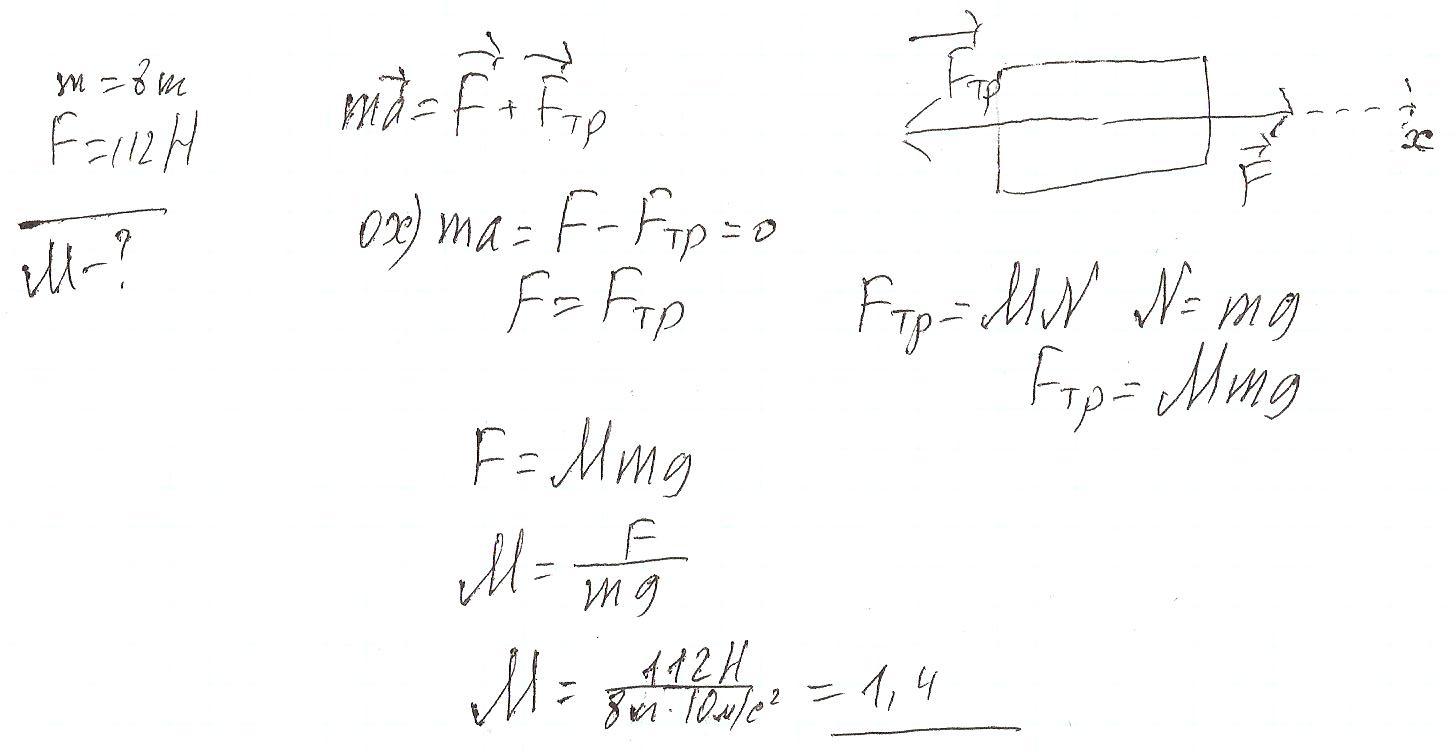 m = 8т
F = 112 Н
М - ?
ma = F + Fтр
ox) ma = F - Fтр = 0
F = Fтр
Fтр
F
x
Fтр = МN N = mg
Fтр = Мmg
F = Мmg
М = F / mg
М = 112 Н / 8т · 10 м/с² = 1,4